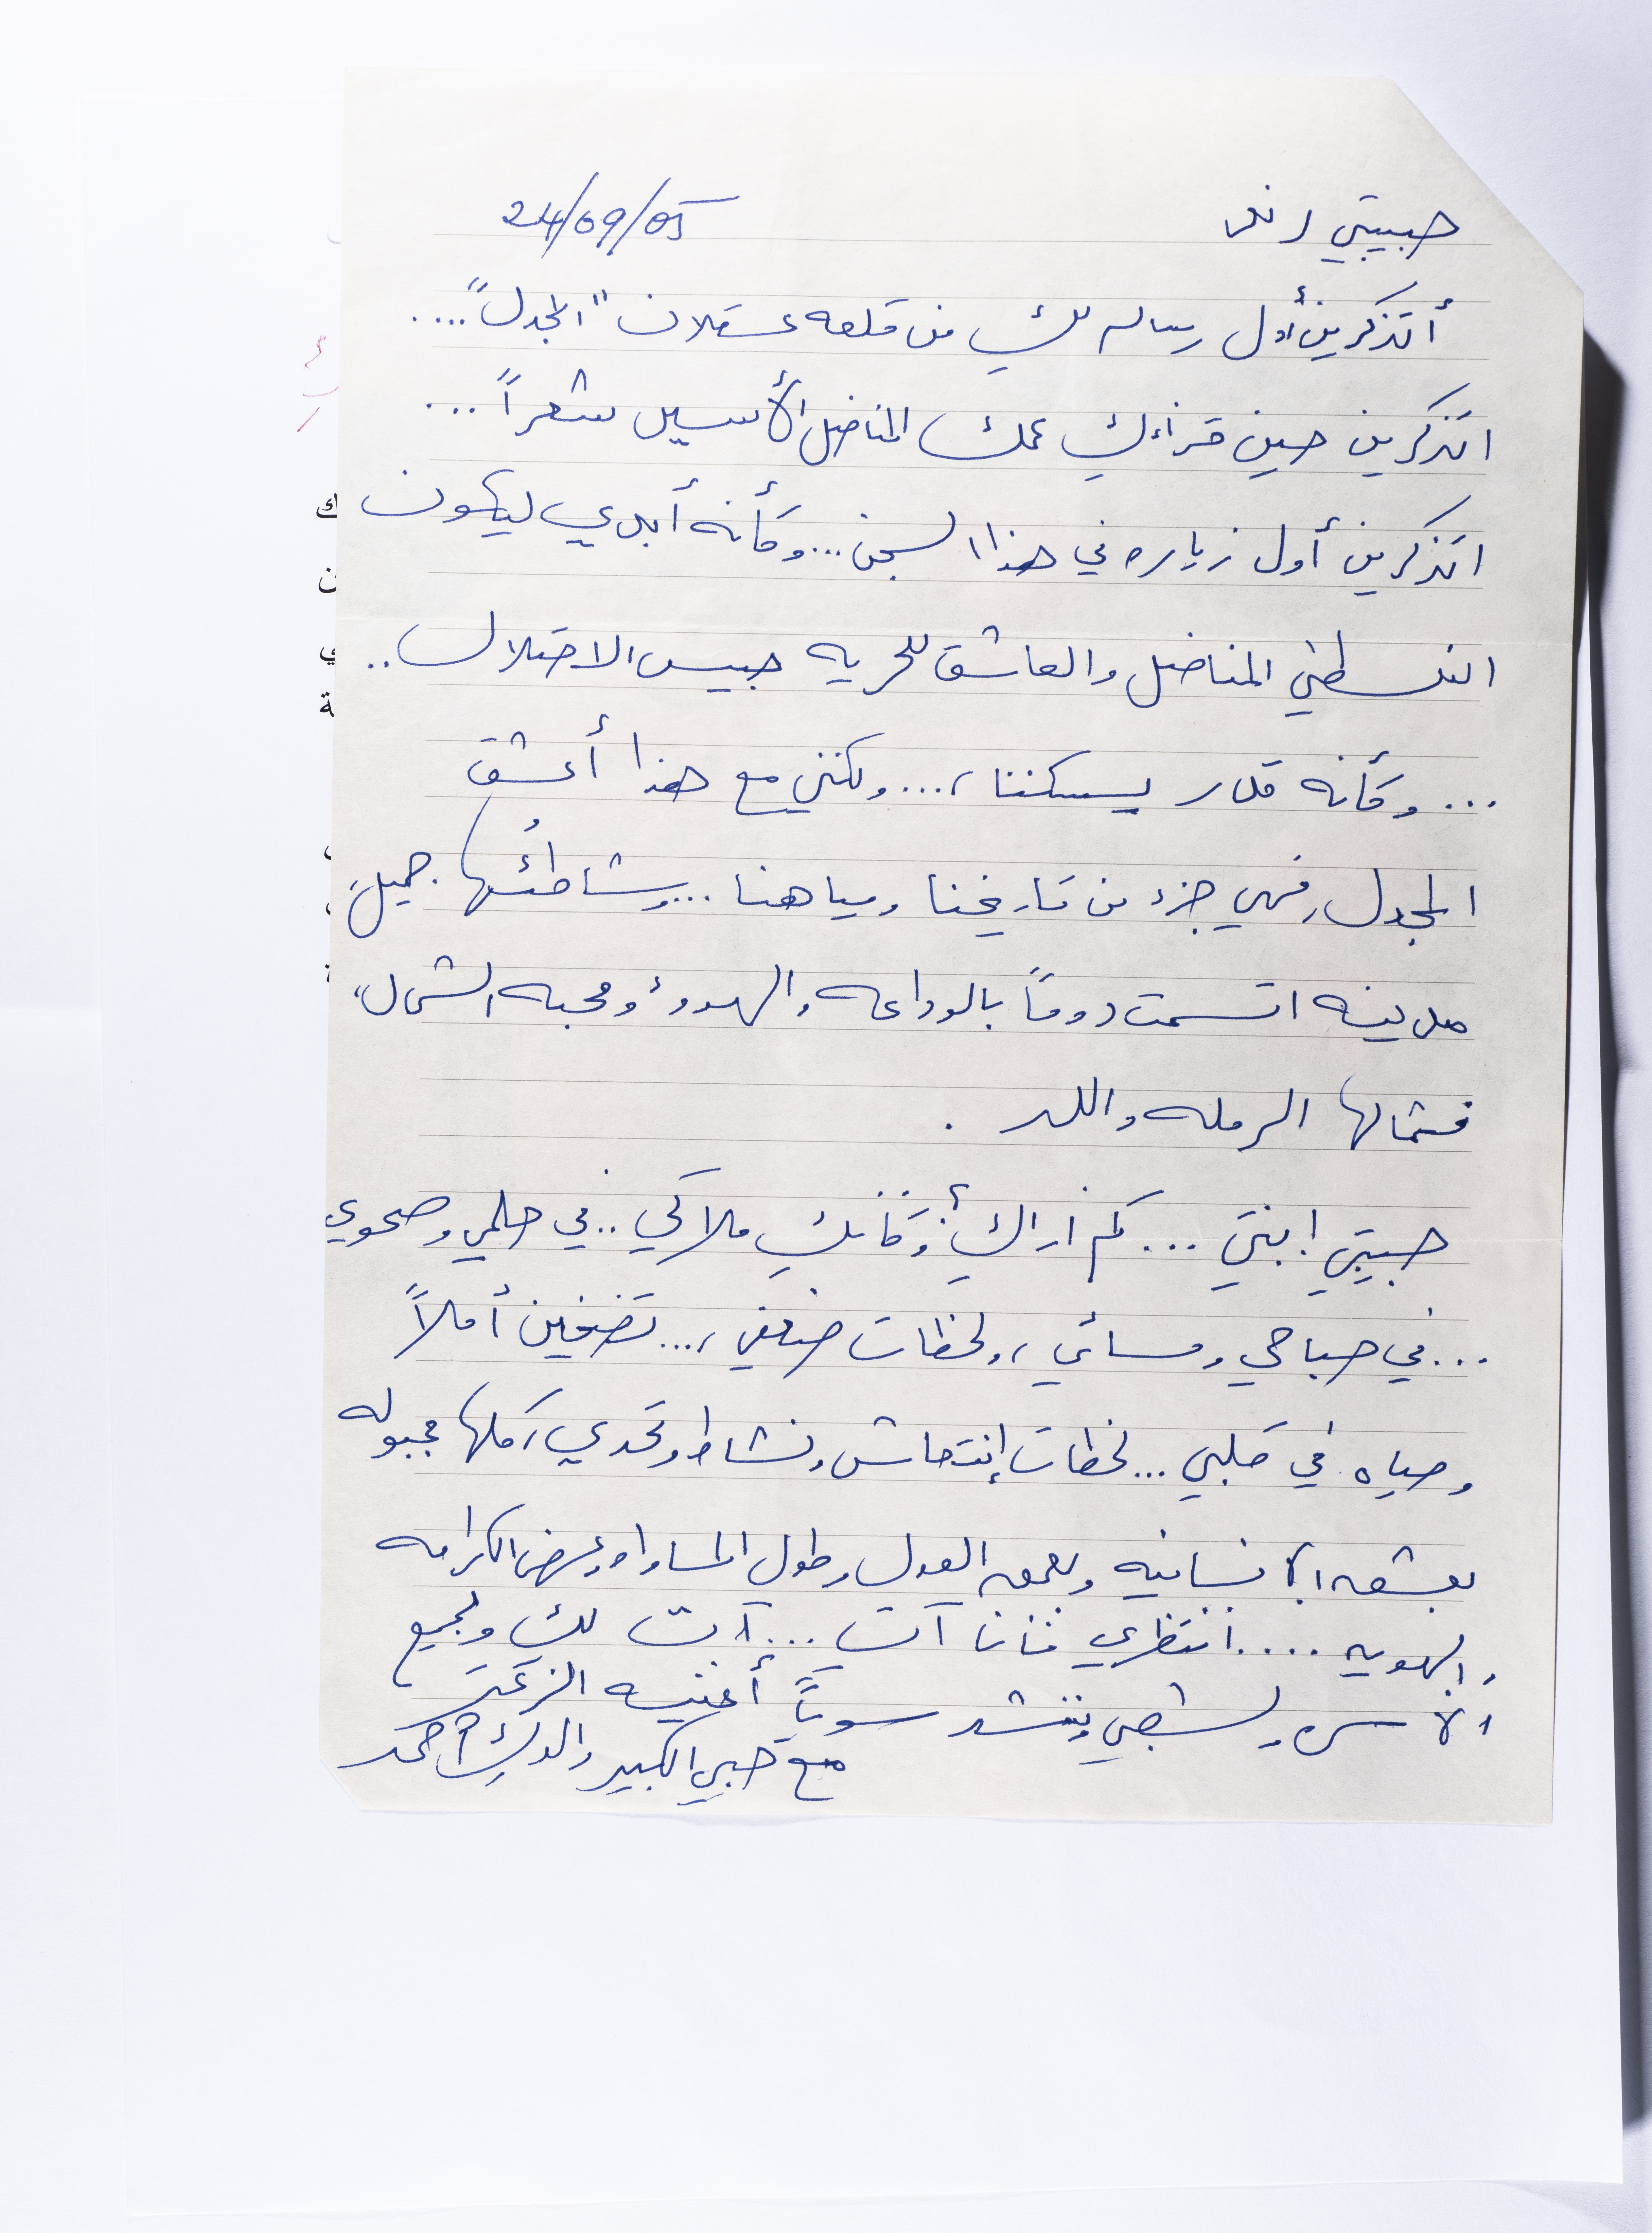 حبيبتي رنده 24/09/05
أتذكرين أول رساله لكِ من قلعه عسقلان "المجدل" ....
اتذكرين حين قرأءكِ عمك المناضل الأسير شعراً ...
اتذكرين أول زياره في هذا السجن ... وكأنه أبدي ليكون
الفلسطيني المناضل والعاشق للحريه حبيس الاحتلال ..
... وكأنه قدر يسكننا ، ... ولكنني مع هذا أعشق
المجدل ، فهي جزء من تاريخنا ومياهنا ... وشاطئُها جميل
مدينه اتسمت دوماً بالوداعه والهدوء ومحبه الشمال ،
فشمالها الرمله واللد .
حبيبتي ابنتي ... كم اراكِ وكأنكِ ملاكي .. في حلمي وصحوي
... في صباحي ومسائي ، ولحظات ضعفي ، ... تضخين أملاً
وحياه في قلبي ... لحظات إنتعاش ونشاط وتحدي ، كلها مجبوله
بعشق الانسانيه وبعمق العدل وطول المساواه وعرض الكرامه
والهويه .... انتظري فأنا آت ... آت لكِ ولجميع
الأسره ولشعبي وننشد سوياً أغنيه الزعتر
مع حبي الكبير والدكِ أحمد
ك
ن
ي
ة